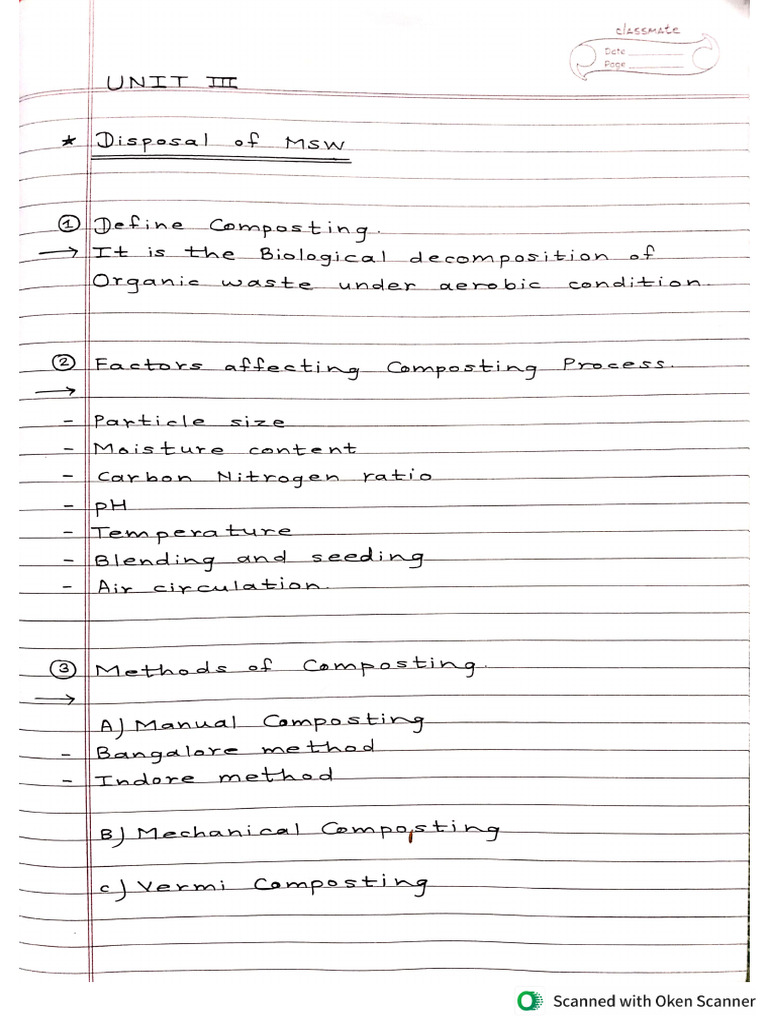 classmate
Date
Page
UNIT III
* Disposal of MSW
① Define Composting.
→ It is the Biological decomposition of
Organic waste under aerobic condition.
② Factors affecting Composting Process.
→
- Particle size
- Moisture content
- Carbon Nitrogen ratio
- pH
- Temperature
- Blending and seeding
- Air circulation.
③ Methods of Composting.
→
A) Manual Composting
- Bangalore method
- Indore method
B) Mechanical Composting
C) Vermi Composting
Scanned with Oken Scanner